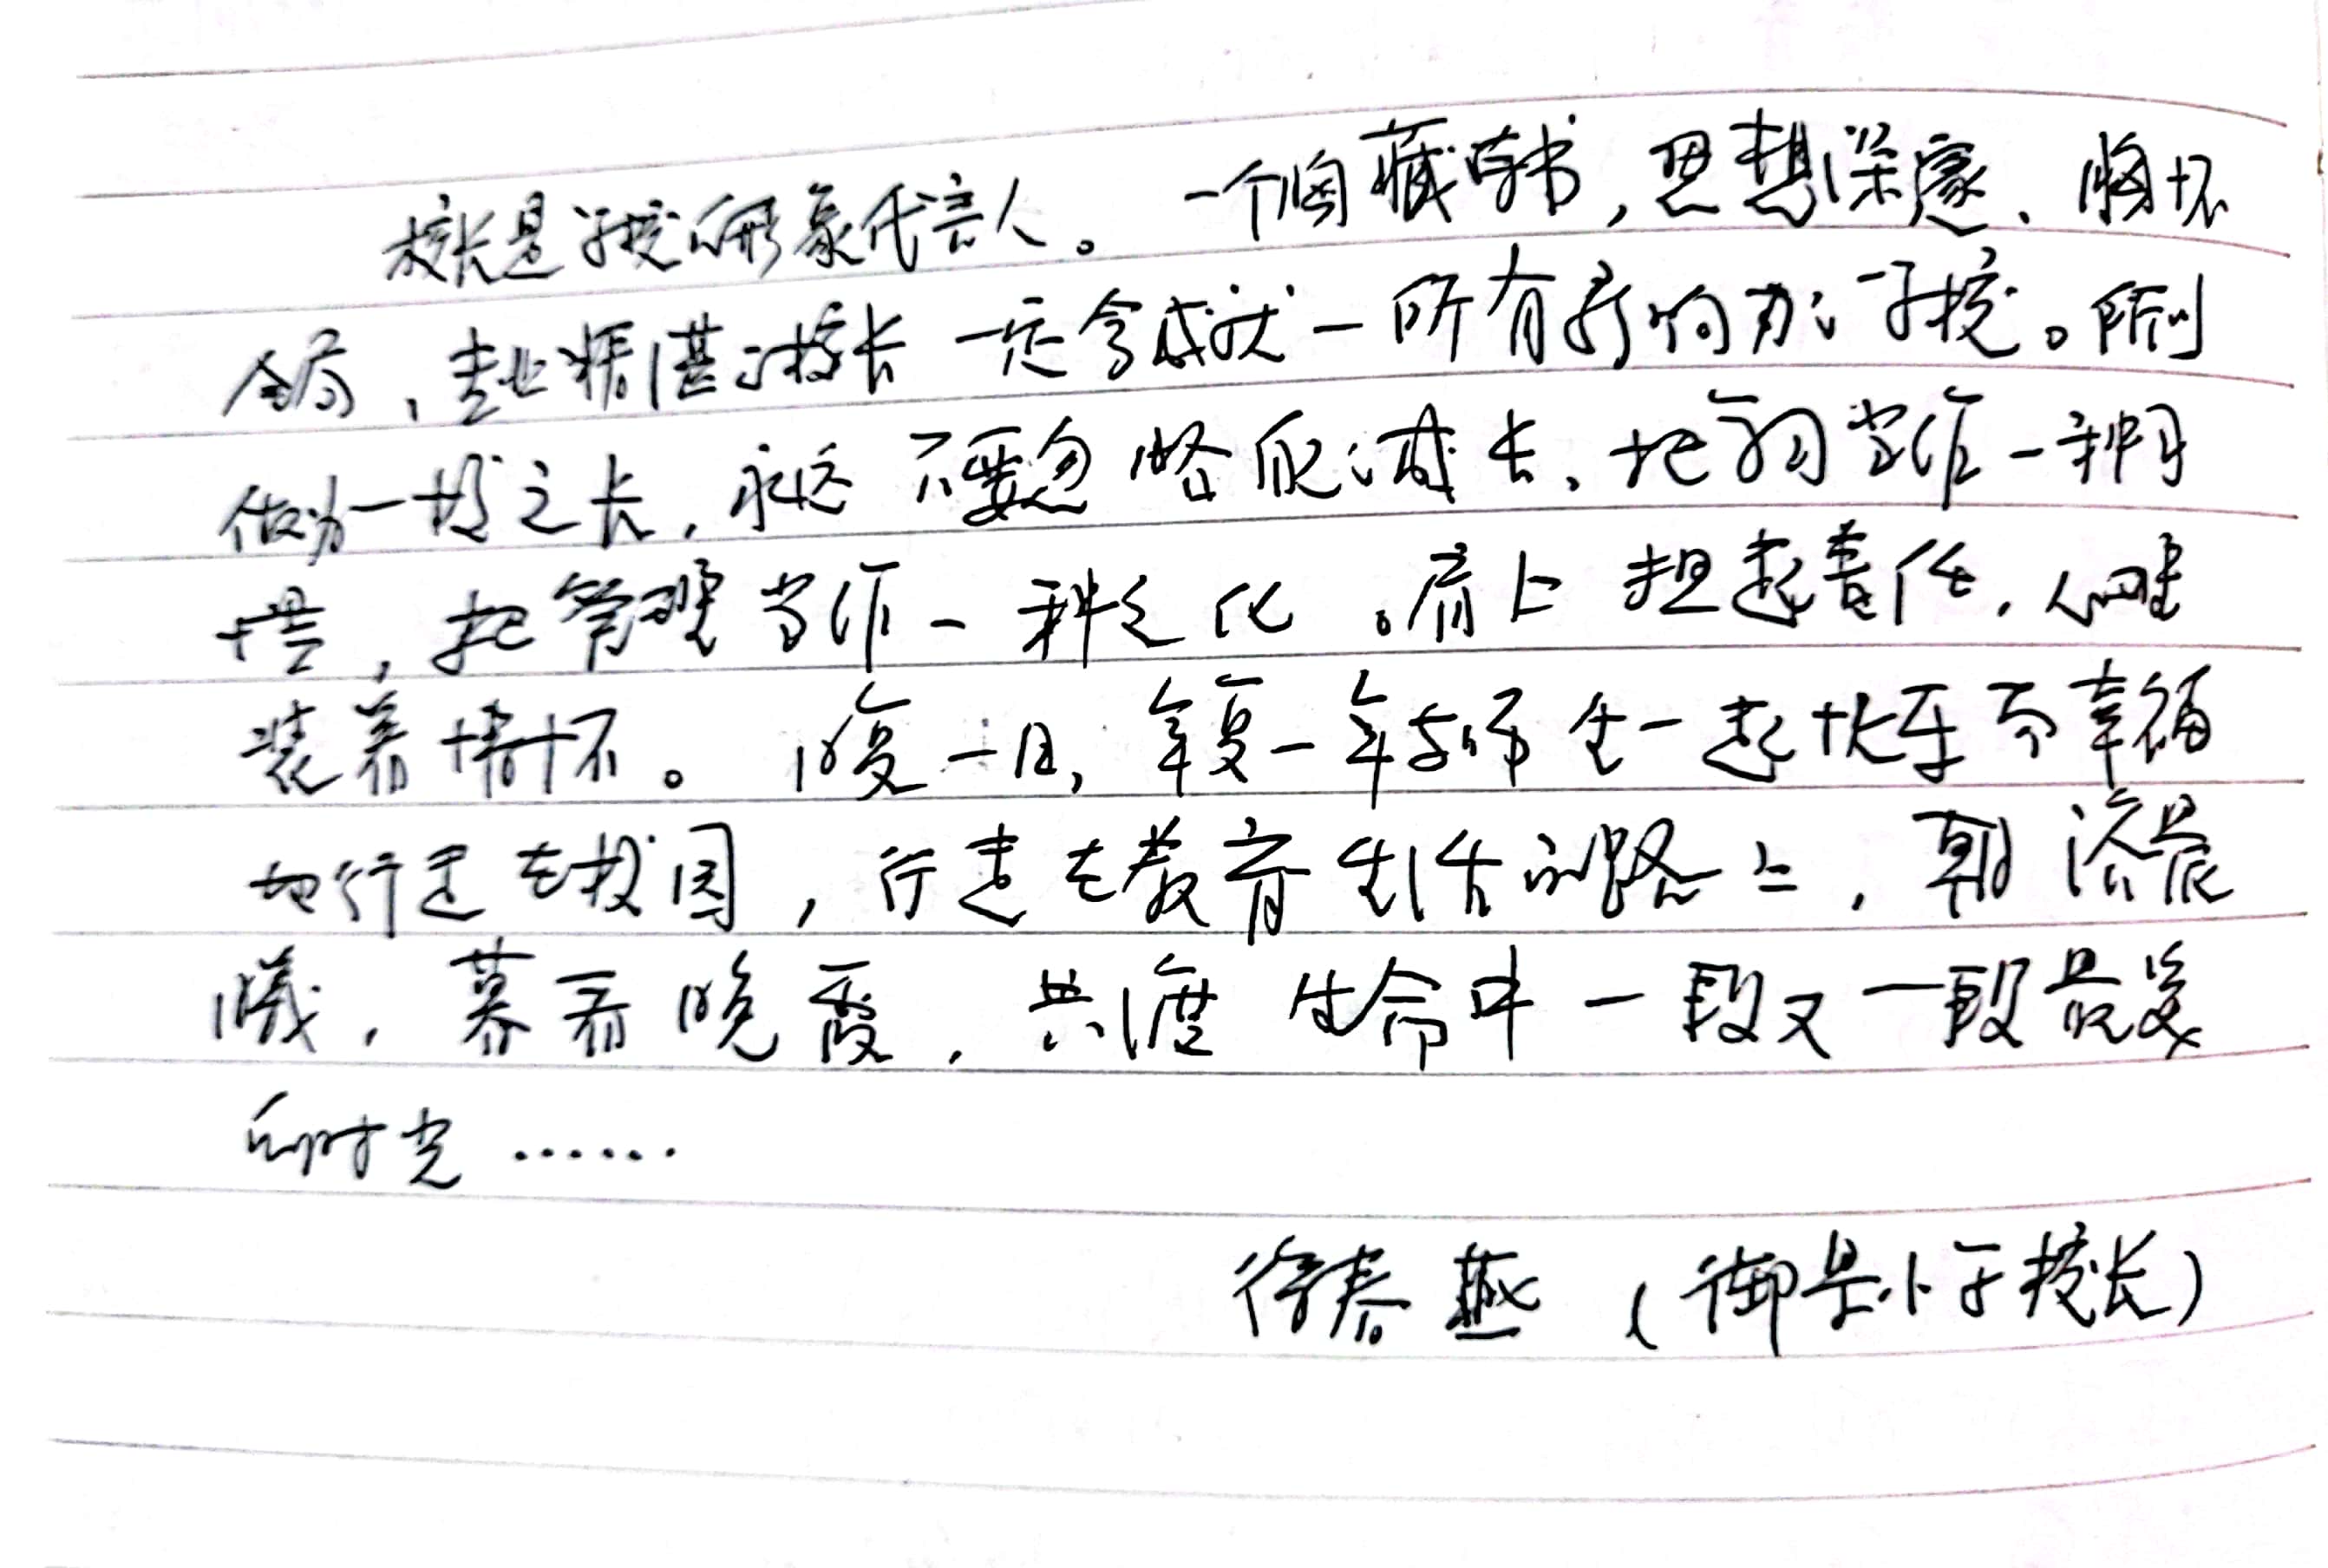 校长是学校的形象代言人。一个胸藏诗书,思想深邃、胸怀
全局、专业精湛的校长一定会成就一所有影响力的学校。所以
做为一校之长,永远不要忽略的成长、把学习当作一种习
惯,把管理当作一种文化。肩上担起责任,心里
装着情怀。日复一日,年复一年与师生一起快乐而幸福
地行走在校园,行走在教育生活的路上,朝浴晨
曦,暮看晚霞,共度生命中一段又一段最美
的时光……
徐春燕(御景小学校长)